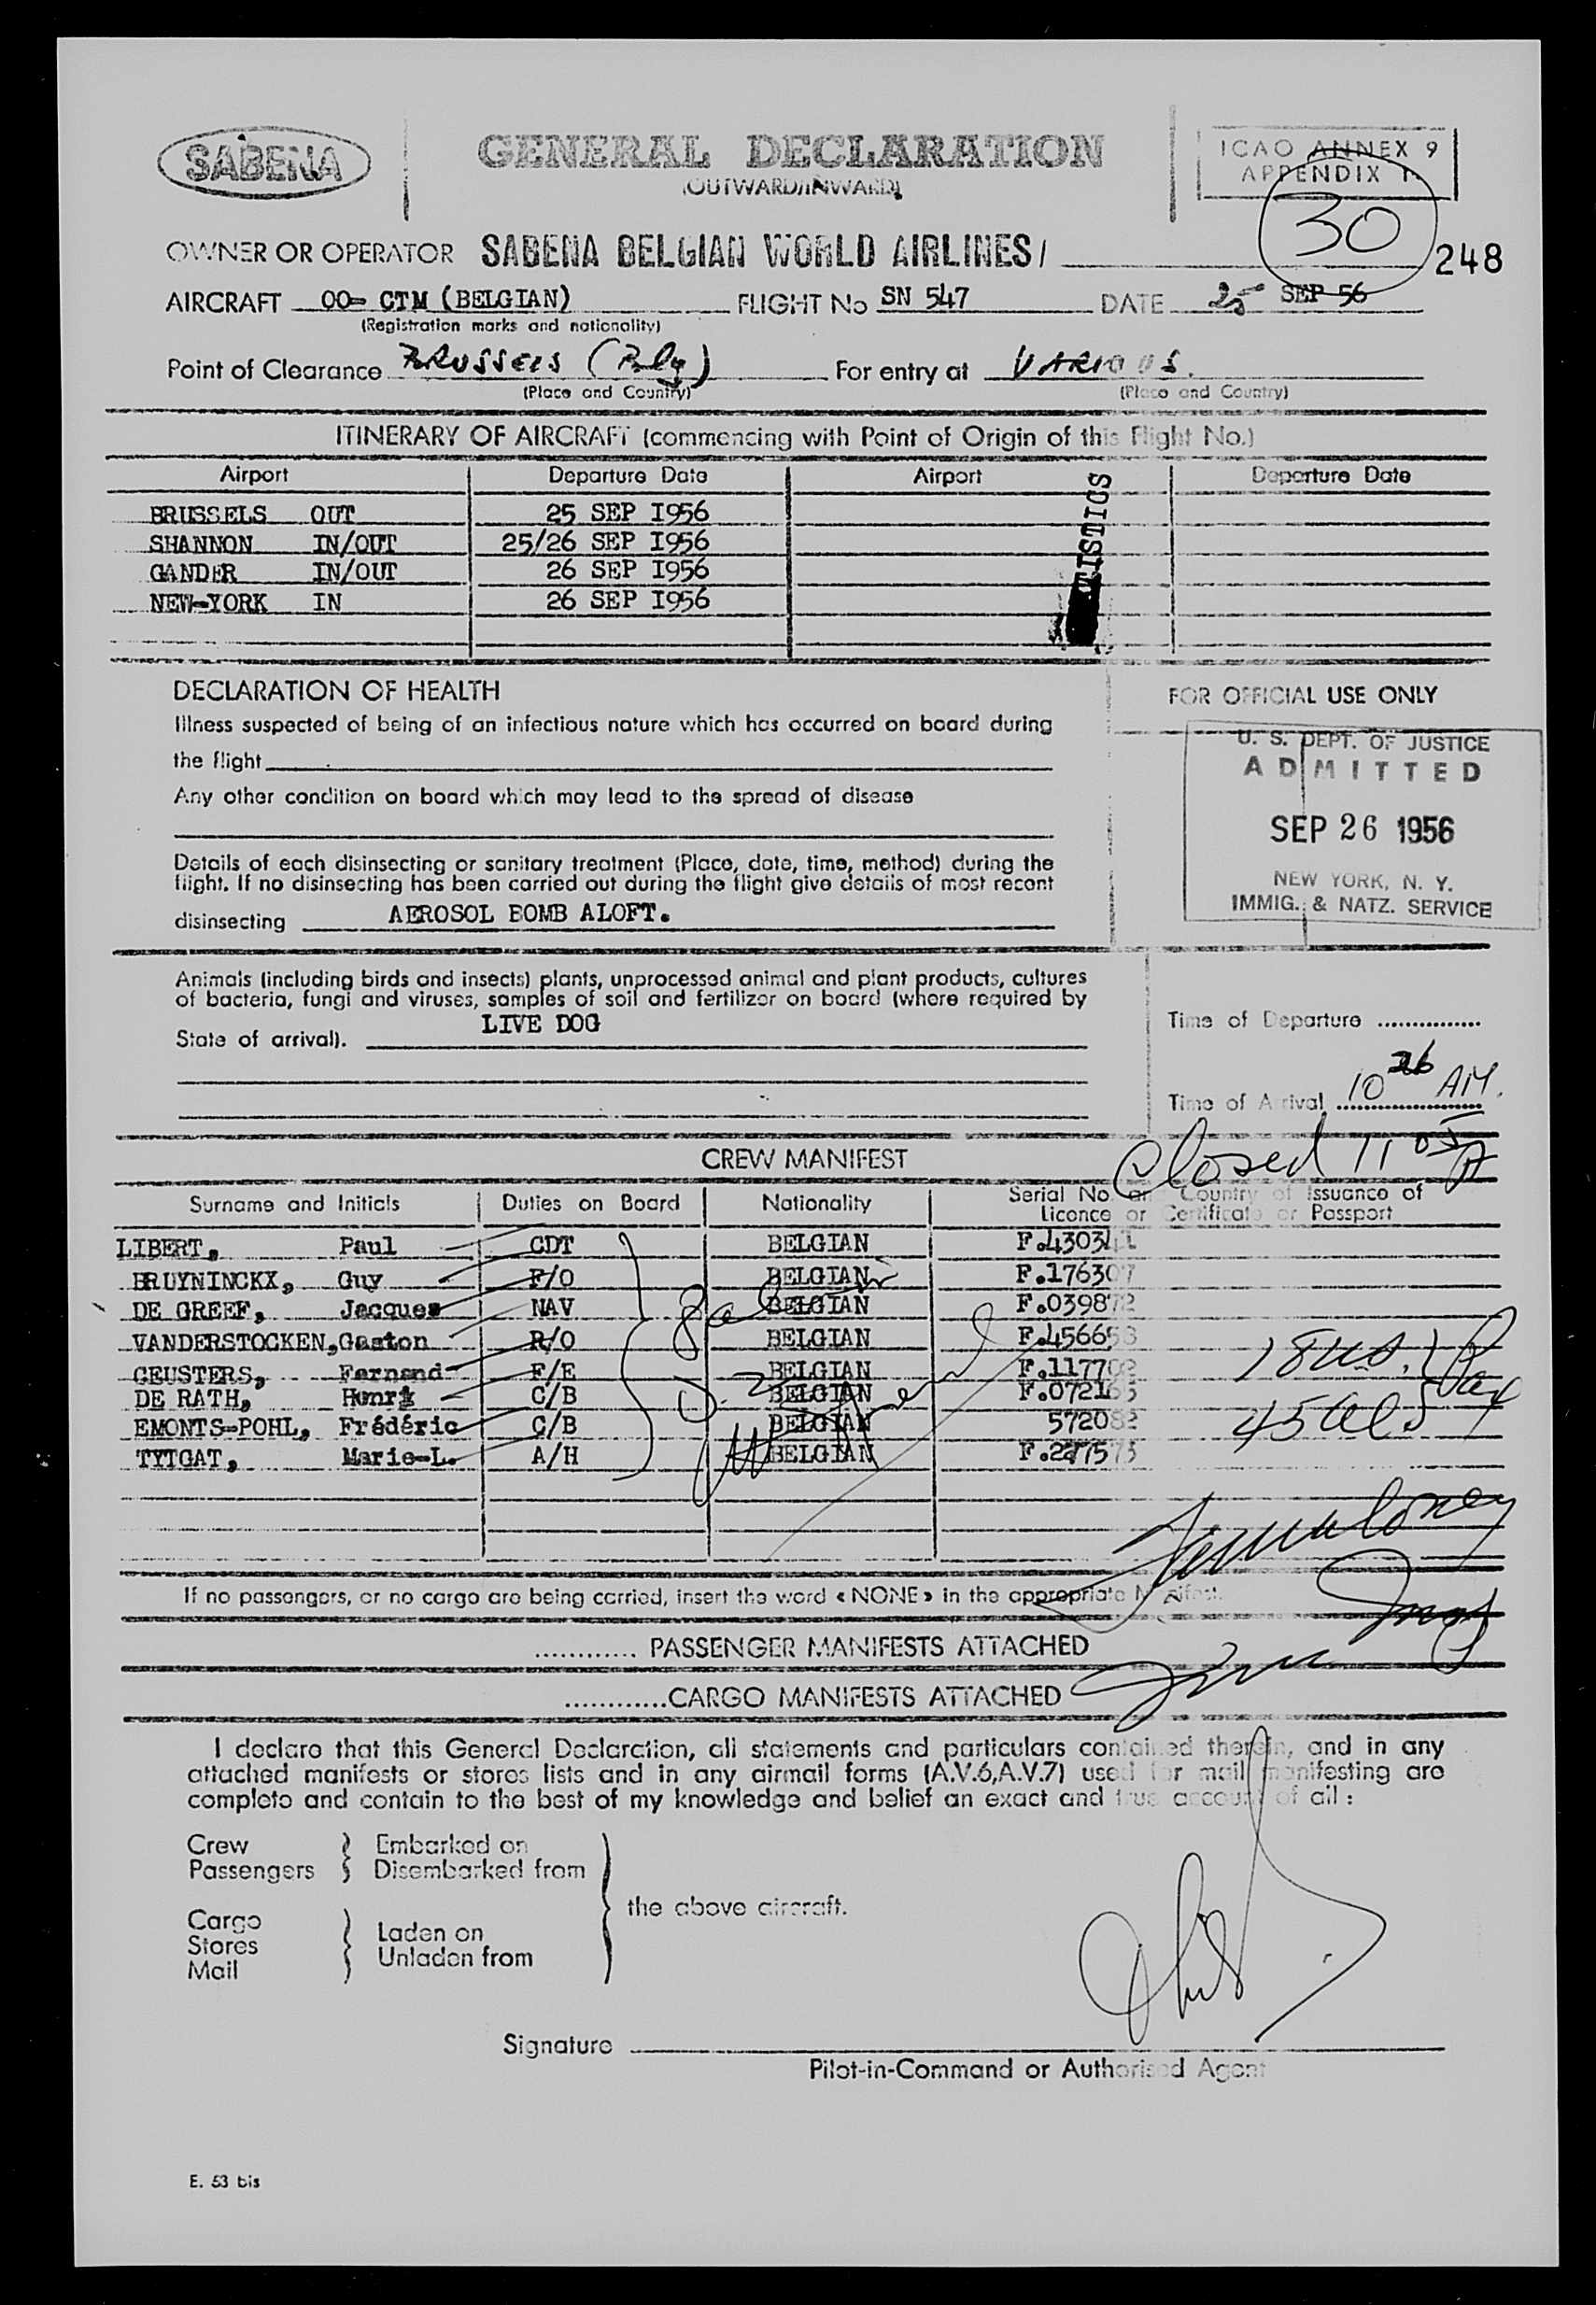 SABENA
GENERAL DECLARATION
(OUTWARD/INWARD)
ICAO ANNEX 9
APPENDIX 1.
30
248
OWNER OR OPERATOR SABENA BELGIAN WORLD AIRLINES/
AIRCRAFT OO- CTM (BELGIAN) FLIGHT No SN 547 DATE 25 SEP 56
(Registration marks and nationality)
Point of Clearance BRUSSELS (Belg) For entry at VARIOUS.
(Place and Country) (Place and Country)
ITINERARY OF AIRCRAFT (commencing with Point of Origin of this Flight No.)
Airport Departure Date Airport Departure Date
BRUSSELS OUT 25 SEP I956
SHANNON IN/OUT 25/26 SEP I956
GANDER IN/OUT 26 SEP I956
NEW-YORK IN 26 SEP I956
TISTICS
DECLARATION OF HEALTH
FOR OFFICIAL USE ONLY
Illness suspected of being of an infectious nature which has occurred on board during
the flight
Any other condition on board which may lead to the spread of disease
U. S. DEPT. OF JUSTICE
ADMITTED
SEP 26 1956
NEW YORK, N. Y.
IMMIG. & NATZ. SERVICE
Details of each disinsecting or sanitary treatment (Place, date, time, method) during the
flight. If no disinsecting has been carried out during the flight give details of most recent
disinsecting AEROSOL BOMB ALOFT.
Animals (including birds and insects) plants, unprocessed animal and plant products, cultures
of bacteria, fungi and viruses, samples of soil and fertilizer on board (where required by
LIVE DOG
State of arrival).
Time of Departure
Time of Arrival 10 26 AM.
Closed 11 05 A
CREW MANIFEST
Surname and Initials Duties on Board Nationality Serial No. and Country of Issuance of
Licence or Certificate or Passport
LIBERT, Paul CDT BELGIAN F.430341
BRUYNINCKX, Guy F/O BELGIAN F.176307
DE GREEF, Jacques NAV BELGIAN F.039872
VANDERSTOCKEN, Gaston R/O BELGIAN F.456653
CEUSTERS, Fernand F/E BELGIAN F.117702
DE RATH, Henri C/B BELGIAN F.072163
EMONTS-POHL, Frédéric C/B BELGIAN 572082
TYTGAT, Marie-L. A/H BELGIAN F.277573
18 us.
45 als
Pax
If no passengers, or no cargo are being carried, insert the word « NONE » in the appropriate Manifest.
............ PASSENGER MANIFESTS ATTACHED
............ CARGO MANIFESTS ATTACHED
I declare that this General Declaration, all statements and particulars contained therein, and in any
attached manifests or stores lists and in any airmail forms (A.V.6,A.V.7) used for mail manifesting are
complete and contain to the best of my knowledge and belief an exact and true account of all :
Crew
Passengers
Embarked on
Disembarked from
the above aircraft.
Cargo
Stores
Mail
Laden on
Unladen from
Signature
Pilot-in-Command or Authorised Agent
E. 53 bis